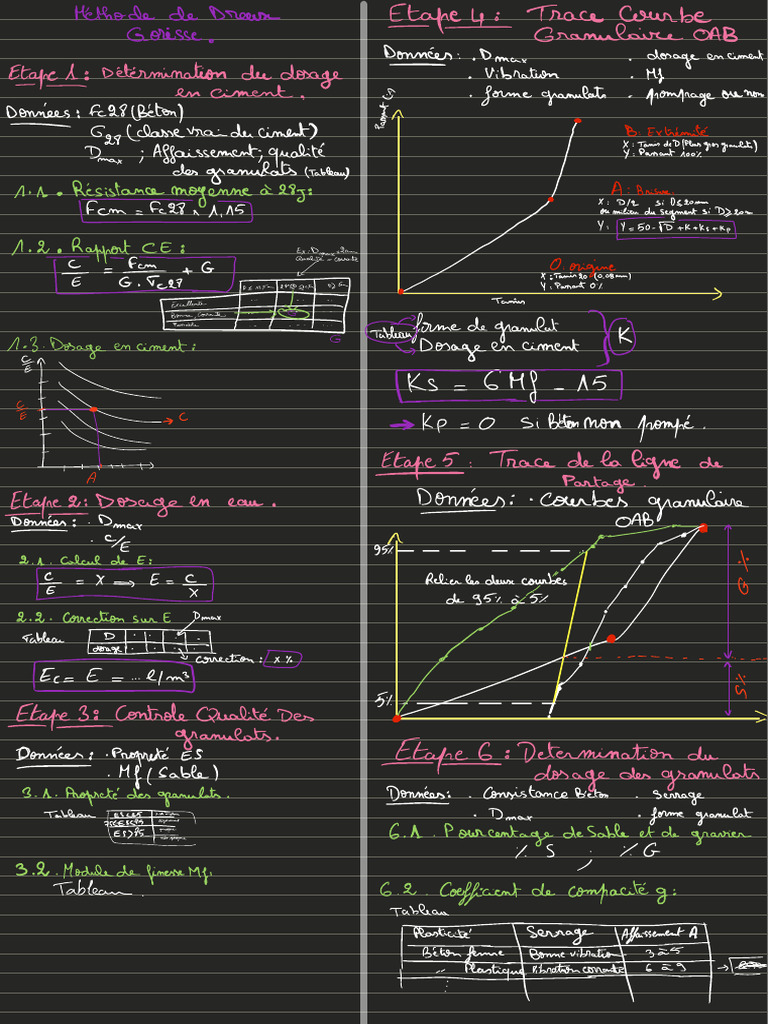 Méthode de Dreux
Gorisse.
Etape 1 : Détermination du dosage
en ciment.
Données : Fc28 (Béton)
G28 (classe vrai du ciment)
Dmax ; Affaissement ; qualité
des granulats (Tableau)
1.1. Résistance moyenne à 28J :
Fcm = Fc28 x 1,15
1.2. Rapport CE :
C/E = Fcm / G. √c28 + G
Qualité = courante
Excellente
Bonne, Courante
Passable
G
1.3. Dosage en ciment :
C/E
C/E
C
A
Etape 2 : Dosage en eau.
Données : . Dmax
. C/E
2.1. Calcul de E :
C/E = X ⟹ E = C/X
2.2. Correction sur E
Dmax
Tableau
D
dosage
correction : x %
Ec = E = ... l/m³
Etape 3 : Controle Qualité Des
granulats.
Données : . Propreté ES
. Mf (Sable)
3.1. Propreté des granulats.
Tableau
3.2. Module de finesse Mf.
Tableau.
Etape 4 : Trace Courbe
Granulaire OAB
Données : . Dmax . dosage en ciment
. Vibration . Mf
. forme granulats . pompage ou non
B : Extrémité
X : Tamis de D (Plus gros granulats)
Y : Passant 100%
A : Brisure
X : D/2 si D≤20mm
ou milieu du segment si D≥20mm
Y : Y = 50 - √D + K + Ks + Kp
O : origine
X : Tamis 20 (0.08mm)
Y : Passant 0%
Tamis
Tableau
forme de granulat
Dosage en ciment
K
Ks = 6Mf - 15
→ Kp = 0 si Béton non pompé.
Etape 5 : Trace de la ligne de
Partage.
Données : . Courbes granulaire
OAB
95%
Relier les deux courbes
de 95% à 5%
G %
S %
5%
Etape 6 : Determination du
dosage des granulats
Données : . Consistance Béton . Serrage
. Dmax . forme granulat
6.1. Pourcentage de Sable et de gravier
% S ; % G
6.2. Coefficient de compacité g :
Tableau
Plasticité Serrage Affaissement A
Béton ferme Bonne vibration 3 à 5
" Plastique Vibration courante 6 à 9